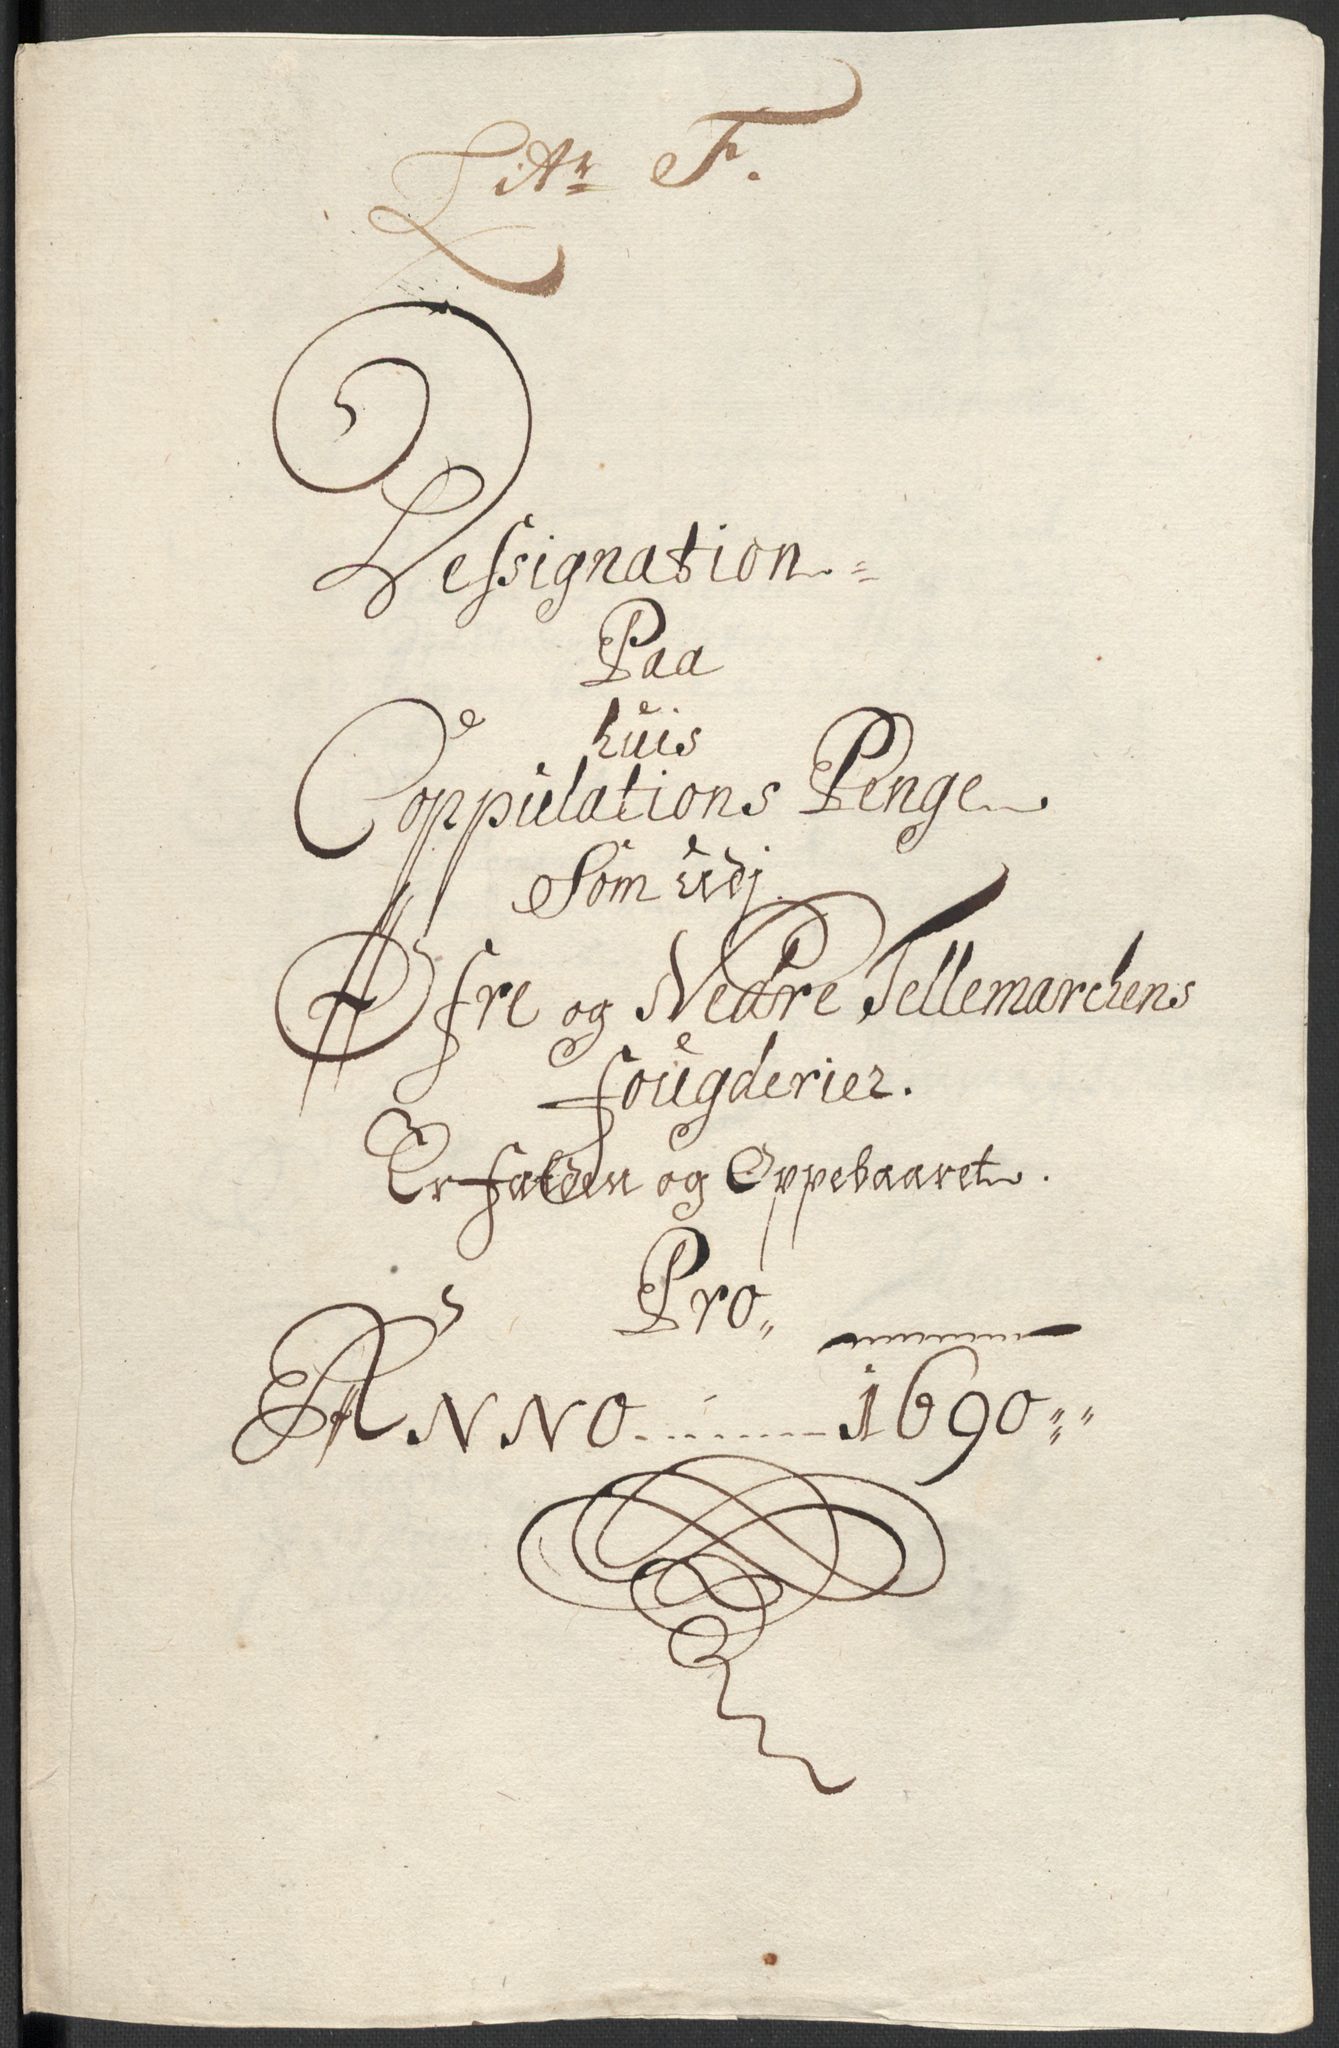 Litr F.
Dessignation
Paa
huis
Coppulations Penge
Som udj
Øfre og Nedre Tellemarchens
fougderier.
Er falden og Oppebaaret.
Pro
ANNO 1690